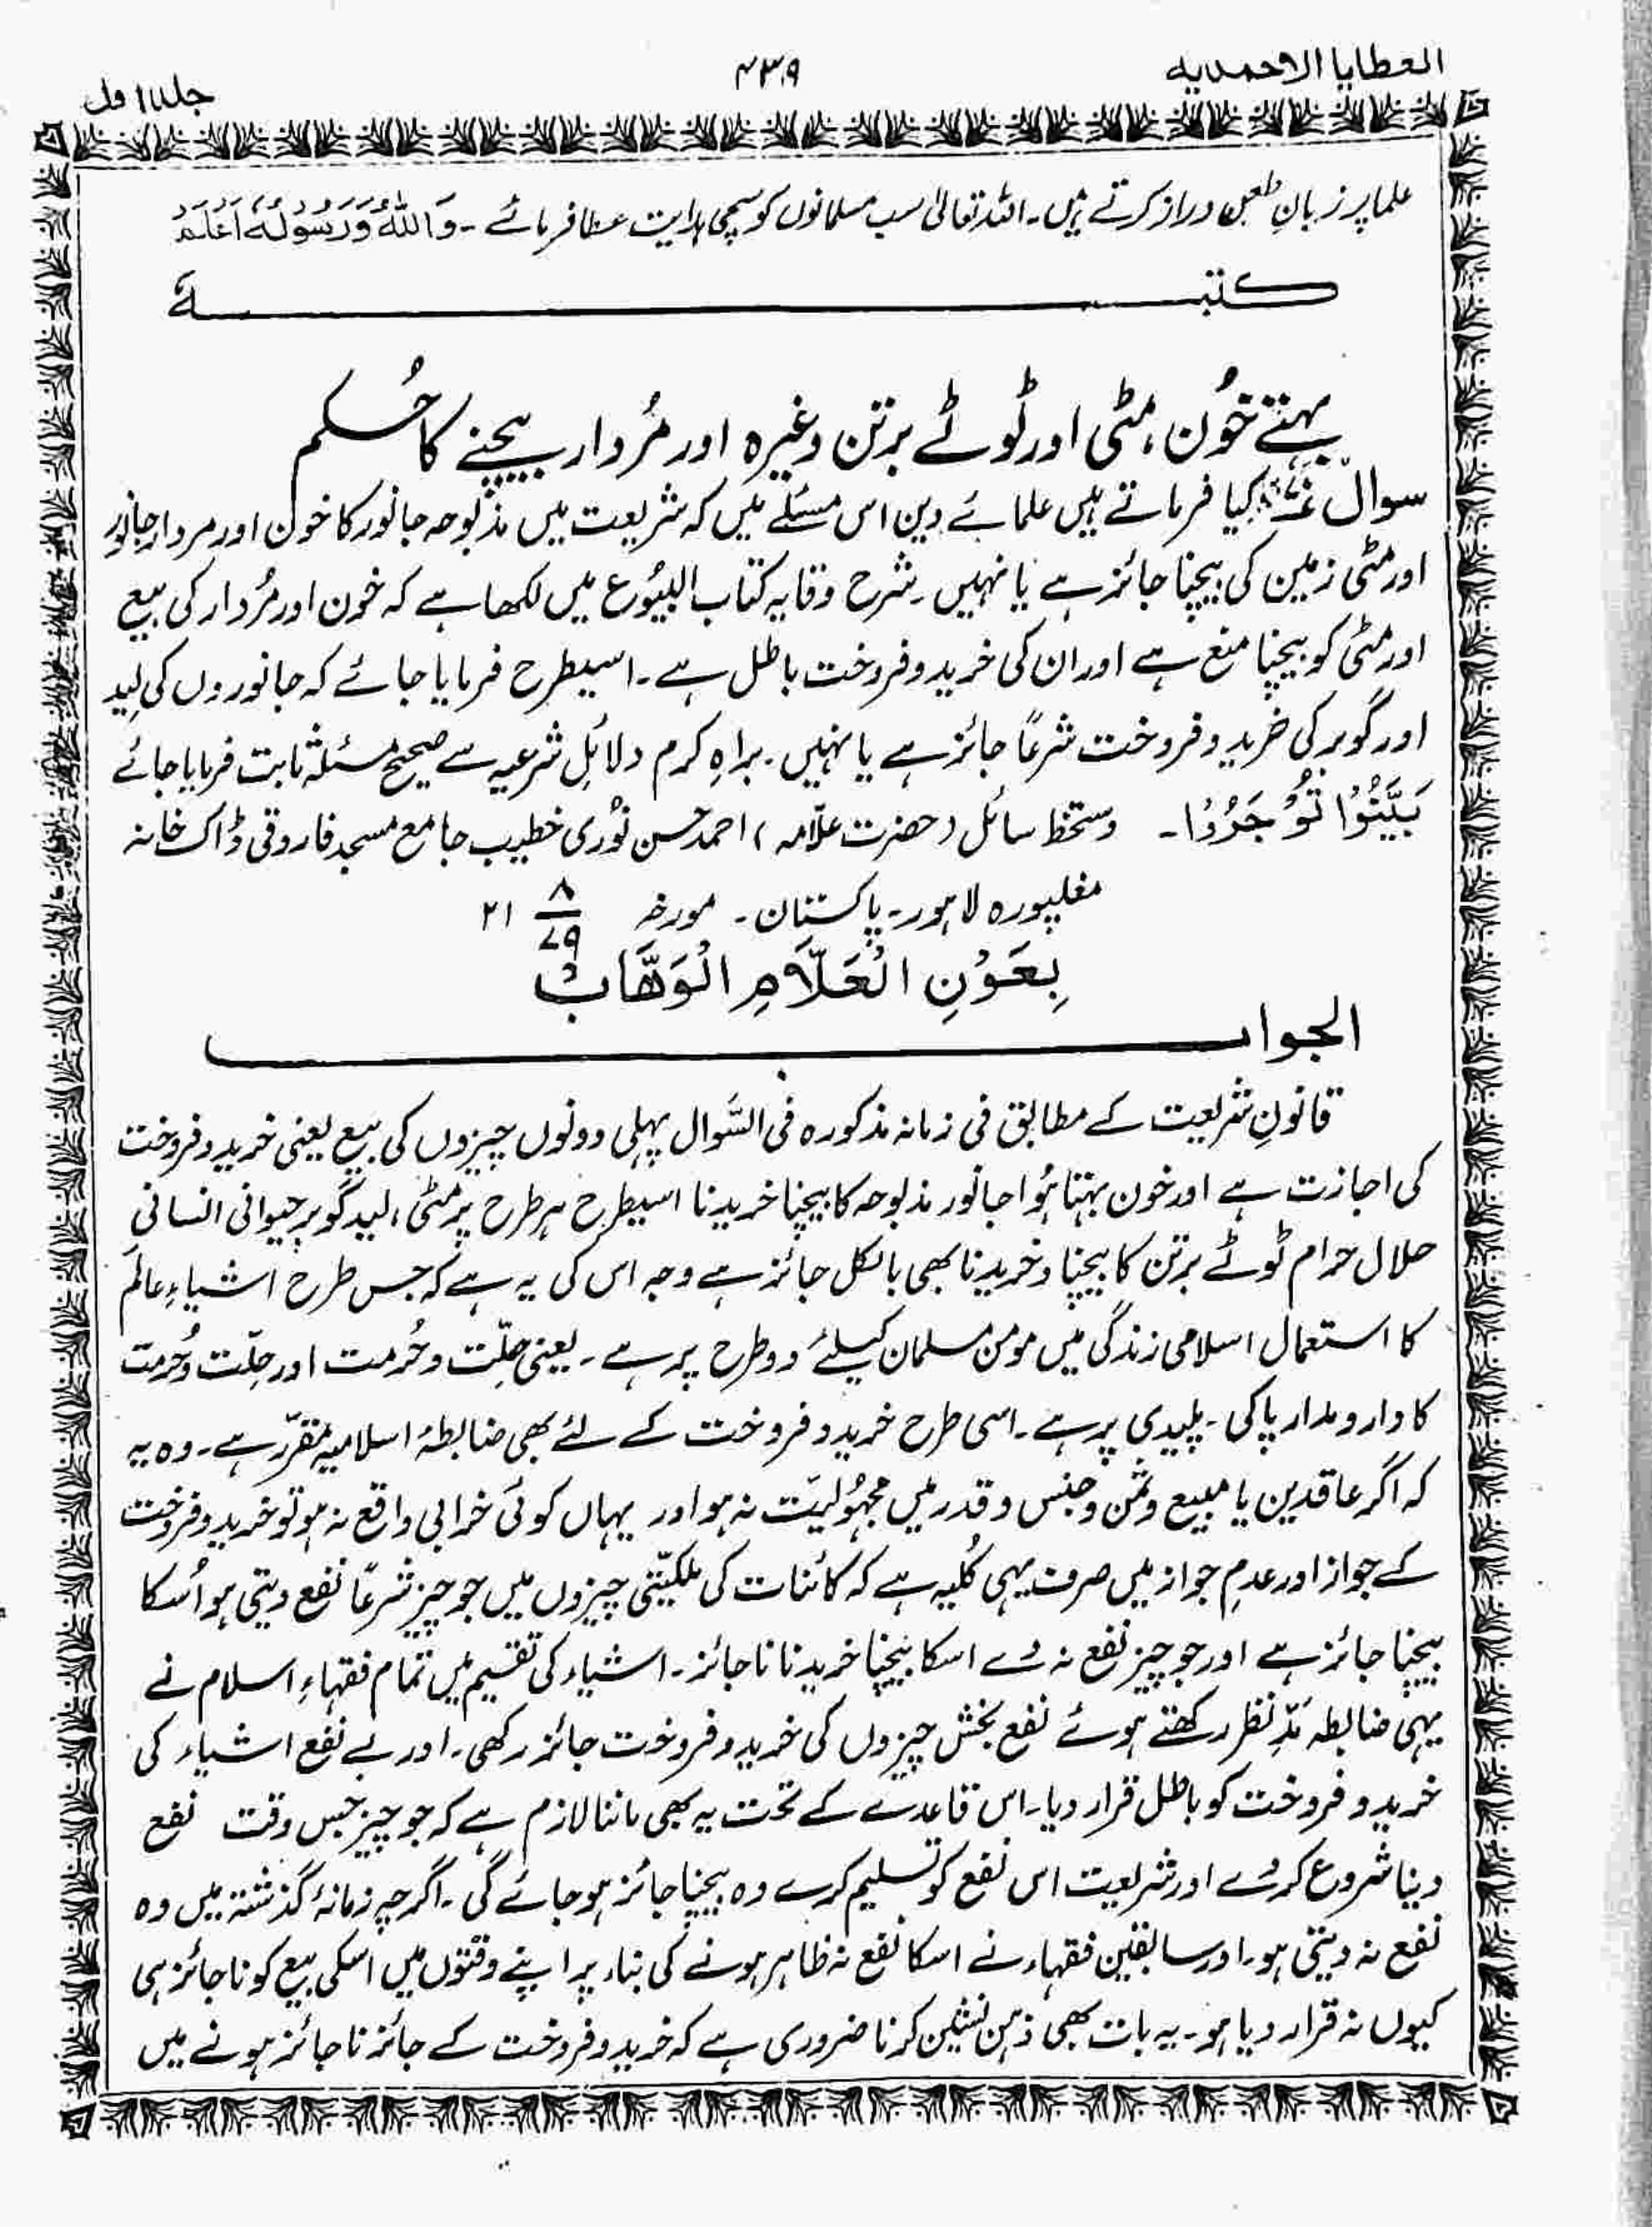 العطایا الاحمدیه
۴۳۹
جلد اول
علما پر زبانِ طعن دراز کرتے ہیں۔ اللہ تعالیٰ سب مسلمانوں کو سچی ہدایت عطا فرمائے۔ وَاللّٰهُ وَرَسُوْلُهٗ اَعْلَمُ
کتبــــــــــــہٗ
بہتے خُون، مٹی اور ٹوٹے برتن وغیرہ اور مُردار بیچنے کا حُکم
سوال کیا فرماتے ہیں علمائے دین اس مسئلے میں کہ شریعت میں مذبوحہ جانور کا خون اور مردار جانور
اور مٹی زمین کی بیچنا جائز ہے یا نہیں۔ شرح وقایہ کتاب البیُوع میں لکھا ہے کہ خون اور مُردار کی بیع
اور مٹی کو بیچنا منع ہے اور ان کی خرید و فروخت باطل ہے۔ اسیطرح فرمایا جائے کہ جانوروں کی لِید
اور گوبر کی خرید و فروخت شرعًا جائز ہے یا نہیں۔ براہِ کرم دلائلِ شرعیہ سے صحیح مسئلہ ثابت فرمایا جائے
بَیِّنُوْا تُوْجَرُوْا۔ دستخط سائل (حضرت علّامہ) احمد حسن نُوری خطیب جامع مسجد فاروقی ڈاک خانہ
مغلپورہ لاہور۔ پاکستان۔ مورخہ ۸/۷۹ ۲۱
بِعَوْنِ الْعَلَّامِ الْوَهَّابْ
الجواب
قانونِ شریعت کے مطابق فی زمانہ مذکورہ فی السّوال پہلی دونوں چیزوں کی بیع یعنی خرید و فروخت
کی اجازت ہے اور خون بہتا ہُوا جانور مذبوحہ کا بیچنا خریدنا اسیطرح ہر طرح پر مٹی، لید گوبر حیوانی انسانی
حلال حرام ٹوٹے برتن کا بیچنا و خریدنا بھی بالکل جائز ہے وجہ اس کی یہ ہے کہ جس طرح اشیاءِ عالَم
کا استعمال اسلامی زندگی میں مومن مسلمان کیلئے دو طرح پر ہے۔ یعنی حِلّت و حُرمت اور حِلّت و حُرمت
کا دار و مدار پاکی۔ پلیدی پر ہے۔ اسی طرح خرید و فروخت کے لئے بھی ضابطۂ اسلامیہ مقرّر ہے۔ وہ یہ
کہ اگر عاقدین یا مبیع و ثمن و جنس و قدر میں مجہُولیّت نہ ہو اور یہاں کوئی خرابی واقع نہ ہو تو خرید و فروخت
کے جواز اور عدمِ جواز میں صرف یہی کُلیہ ہے کہ کائنات کی ملکیّتی چیزوں میں جو چیز شرعًا نفع دیتی ہو اُسکا
بیچنا جائز ہے اور جو چیز نفع نہ دے اسکا بیچنا خریدنا ناجائز۔ اشیاء کی تقسیم میں تمام فقہاءِ اسلام نے
یہی ضابطہ مدِّ نظر رکھتے ہوئے نفع بخش چیزوں کی خرید و فروخت جائز رکھی۔ اور بے نفع اشیاء کی
خرید و فروخت کو باطل قرار دیا۔ اس قاعدے کے تحت یہ بھی ماننا لازم ہے کہ جو چیز جس وقت نفع
دینا شروع کر دے اور شریعت اس نفع کو تسلیم کرے وہ بیچنا جائز ہو جائے گی۔ اگرچہ زمانۂ گذشتہ میں وہ
نفع نہ دیتی ہو۔ اور سابقین فقہاء نے اسکا نفع نہ ظاہر ہونے کی بناء پر اپنے وقتوں میں اسکی بیع کو ناجائز ہی
کیوں نہ قرار دیا ہو۔ یہ بات بھی ذہن نشین کرنا ضروری ہے کہ خرید و فروخت کے جائز ناجائز ہونے میں